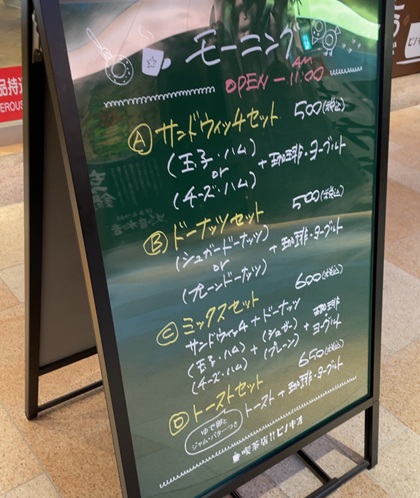 モーニング
AM
OPEN－11:00
Ⓐサンドウィッチセット 500(税込)
(玉子・ハム)
or +珈琲・ヨーグルト
(チーズ・ハム)
Ⓑドーナッツセット 500(税込)
(シュガードーナッツ)
or +珈琲・ヨーグルト
(プレーンドーナッツ)
Ⓒミックスセット 600(税込)
サンドウィッチ+ドーナッツ 珈琲
(玉子・ハム)+(シュガー)+ヨーグルト
(チーズ・ハム) (プレーン)
Ⓓトーストセット 650(税込)
ゆで卵と トースト+珈琲・ヨーグルト
ジャム・バターつき
喫茶店ピノキオ
品持込
EROUS
ピノ